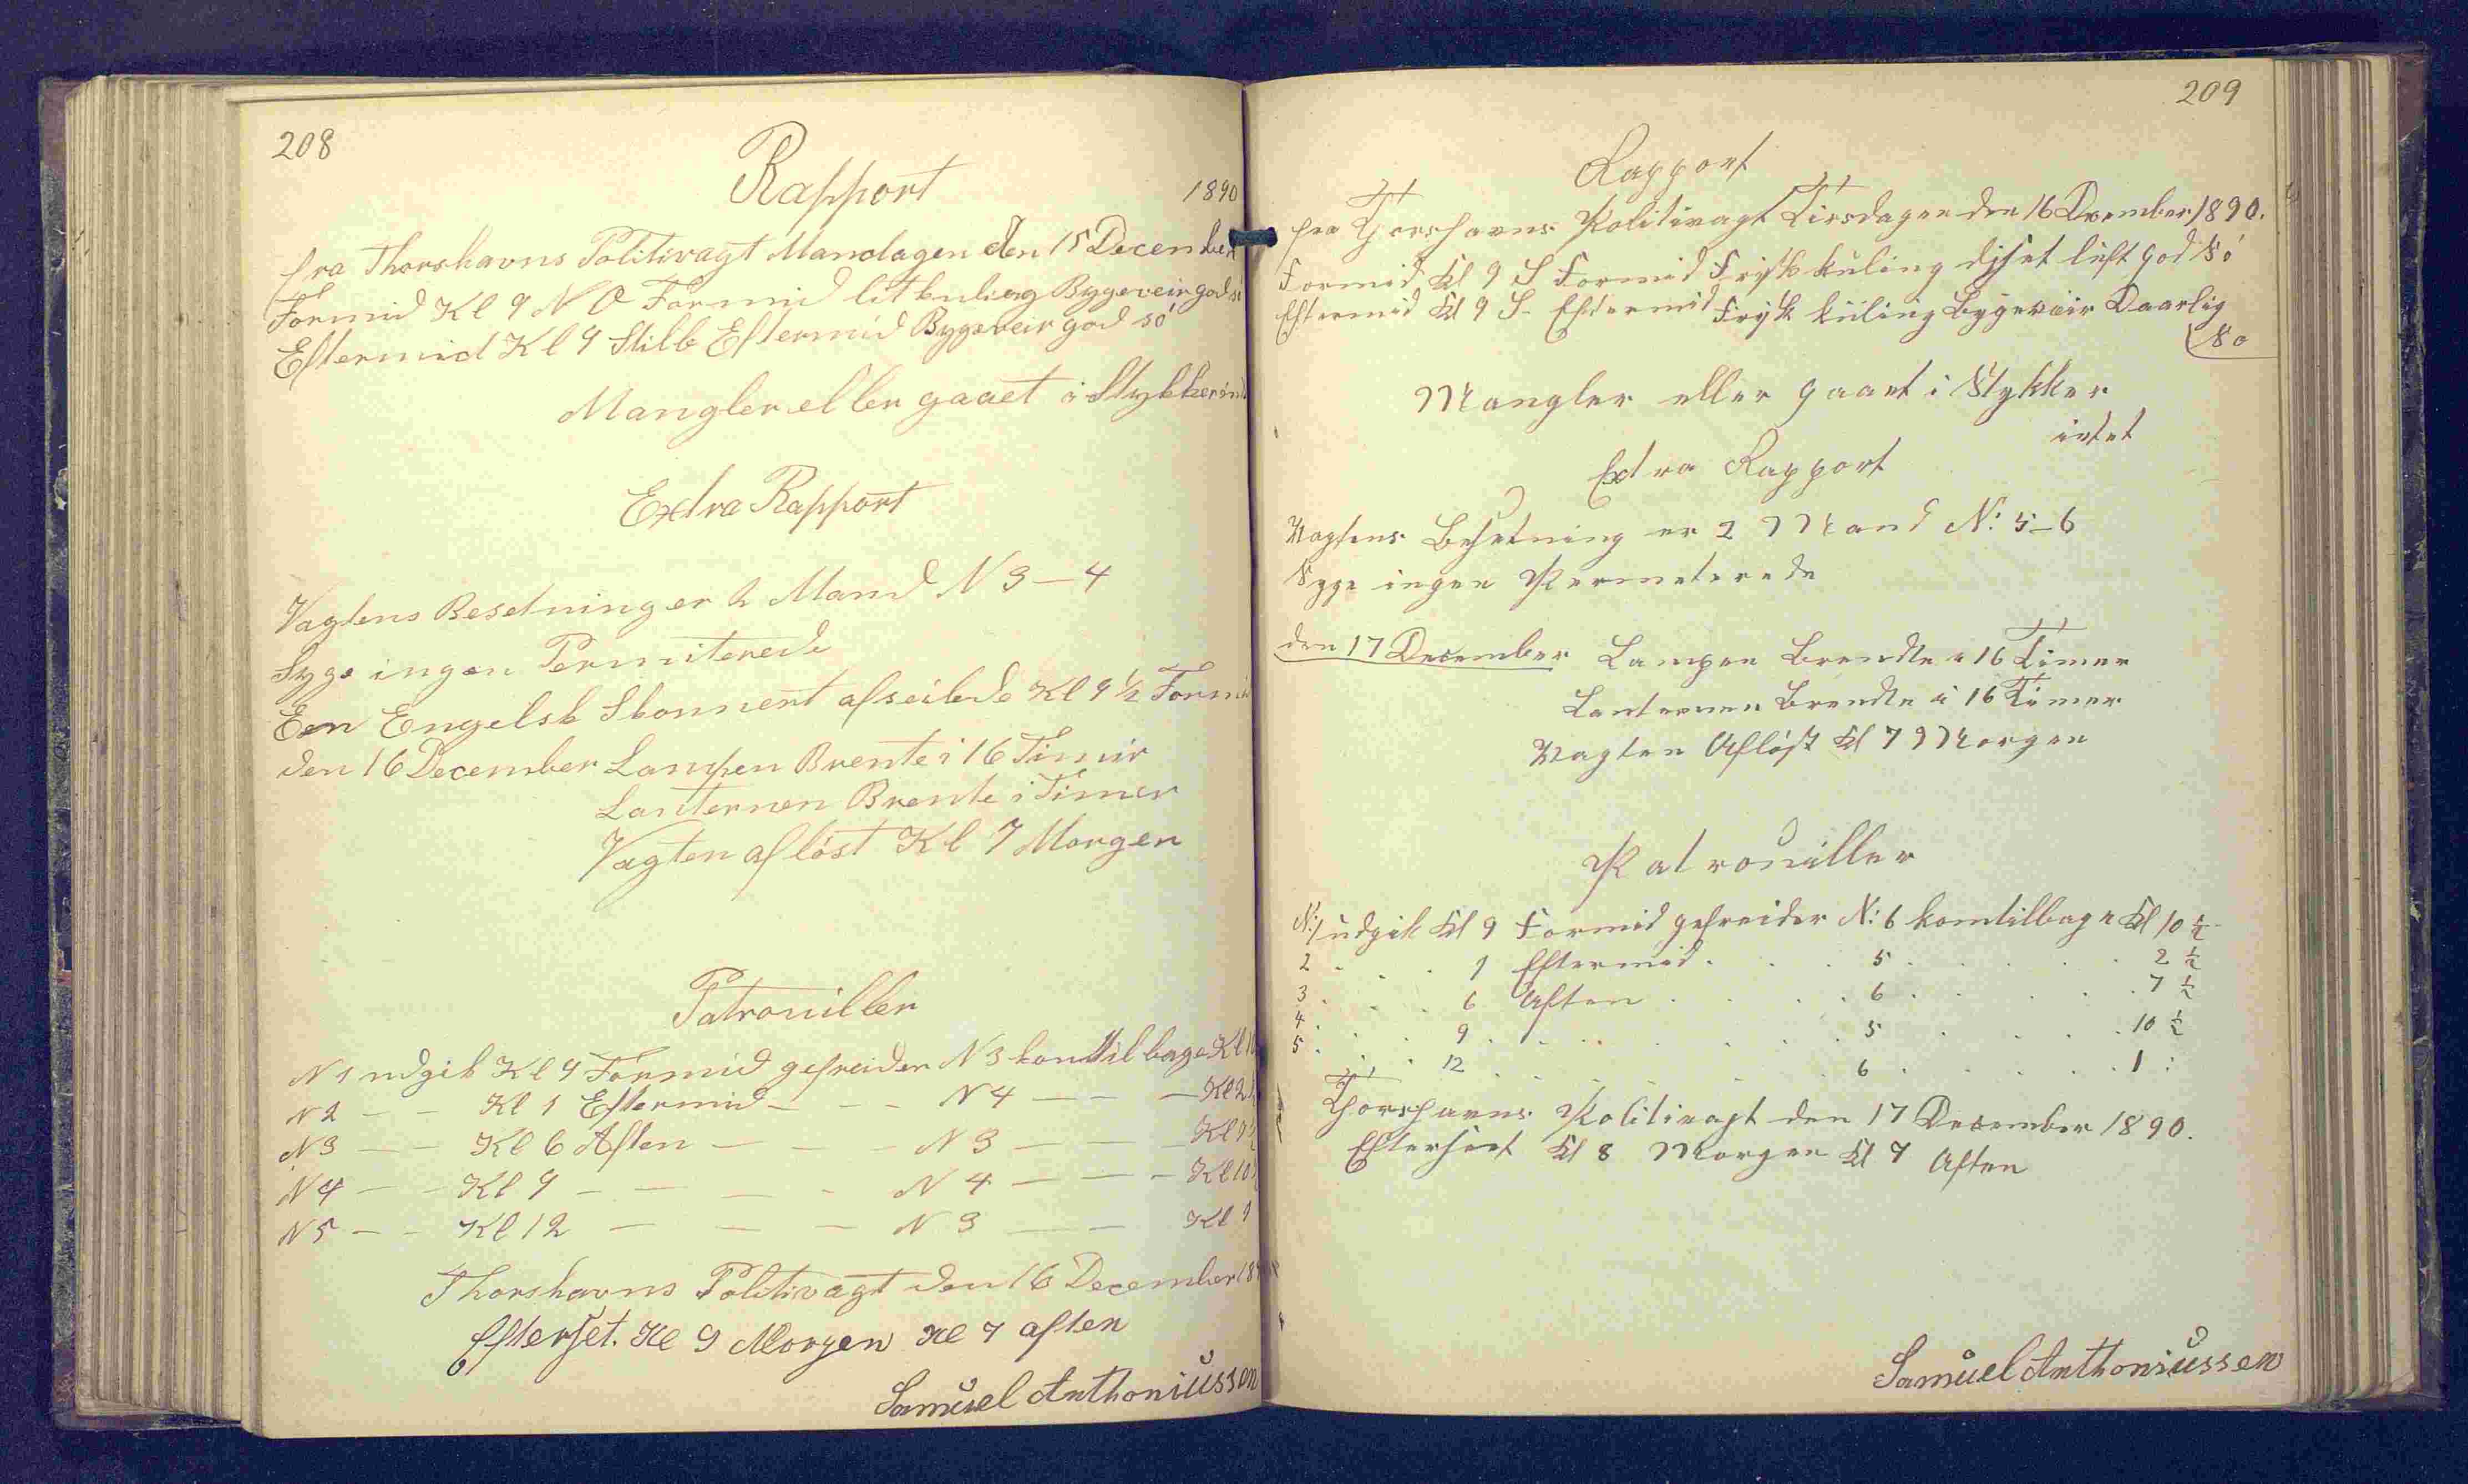 208
Rapport
1890
fra Thorshavns Politivagt Mandagen den 15 December
Formid Kl 9 N O Formid lit kuling Bygeveir god sö
Eftermid Kl 9 Stille Eftermid Bygeveir god sö
Mangler eller gaaet i Stykker
Extra Rapport
Vagtens Besetning er 2 Mand N 3 — 4
Syge ingen Permiterede
Een Engelsk Skonnert afseilede Kl 9 ½ Formi
den 16 December Lampen Brente i 16 Timer
Lanternen Brente i Timer
Vagten aflöst Kl 7 Morgen
Patrouiller
N 1 udgik Kl 9 Formid gefreider N 3 kom tilbage Kl 10
N 2 — — Kl 1 Eftermid — — — N 4 — — — Kl 2
N 3 — — Kl 6 Aften — — — N 3 — — — Kl 7½
N 4 — — Kl 9 — — — — N 4 — — — Kl 10
N 5 — — Kl 12 — — — N 3 — — Kl 1
Thorshavns Politivagt den 16 December 18
Efterset. Kl 9 Morgen Kl 7 aften
Samuel Anthoniussen
209
Rapport
fra Thorshavns Politivagt Tirsdagen den 16 December 1890.
Formid Kl 9 S Formid Frisk kuling diset luft god Sö
Eftermid Kl 9 S. Eftermid Frisk kuling Bygeveir Daarlig
Sö
Mangler eller gaaet i Stykker
intet
Extra Rapport
Vagtens Besetning er 2 Mand N: 5–6
Syge ingen Permeterede
den 17 December Lampen Brendte i 16 Timer
Lanternen Brendte i 16 Timer
Vagten Aflöst Kl 7 Morgen
Patrouiller
N: 1 udgik Kl 9 Formid gefreider N: 6 kom tilbage Kl 10 ½
2 . . . 1 Eftermid . . . 5 . . . . . 2 ½
3 . . . 6 Aften . . . . 6 . . . . . 7 ½
4 . . . 9 . . . . . . 5 . . . . 10 ½
5 . . . 12 . . . . . . 6 . . . . . 1 :
Thorshavns Politivagt den 17 December 1890.
Efterseet Kl 8 Morgen Kl 7 Aften
Samuel Anthoniussen